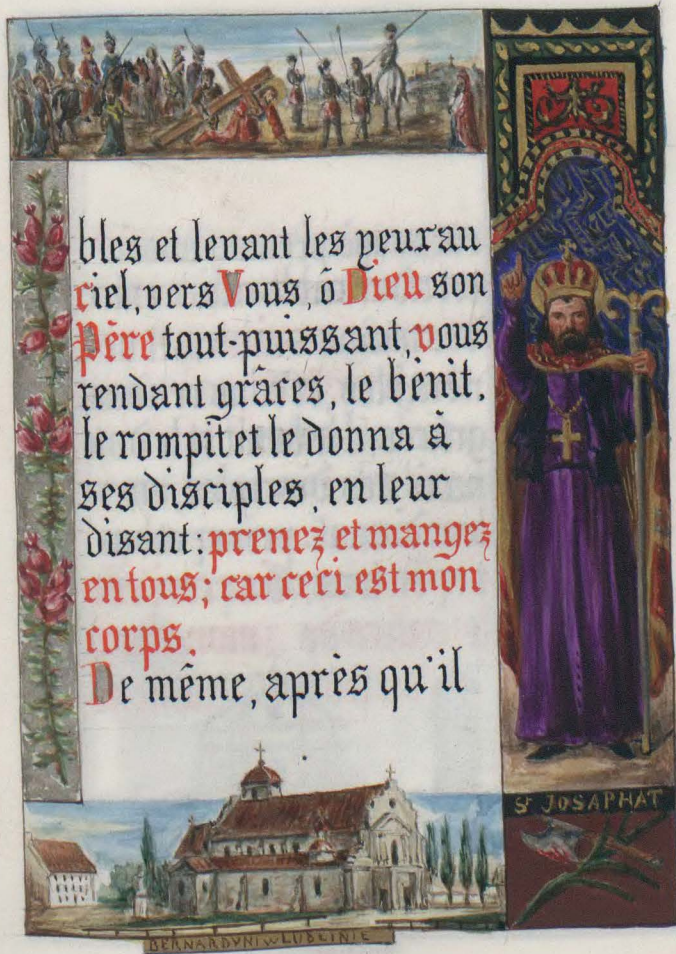 bles et levant les yeux au
ciel, vers Vous, ô Dieu son
Père tout-puissant, vous
rendant grâces, le bénit,
le rompit et le donna à
ses disciples, en leur
disant: prenez et mangez
en tous; car ceci est mon
corps.
De même, après qu'il
St JOSAPHAT
BERNARDYNI W LUBLINIE